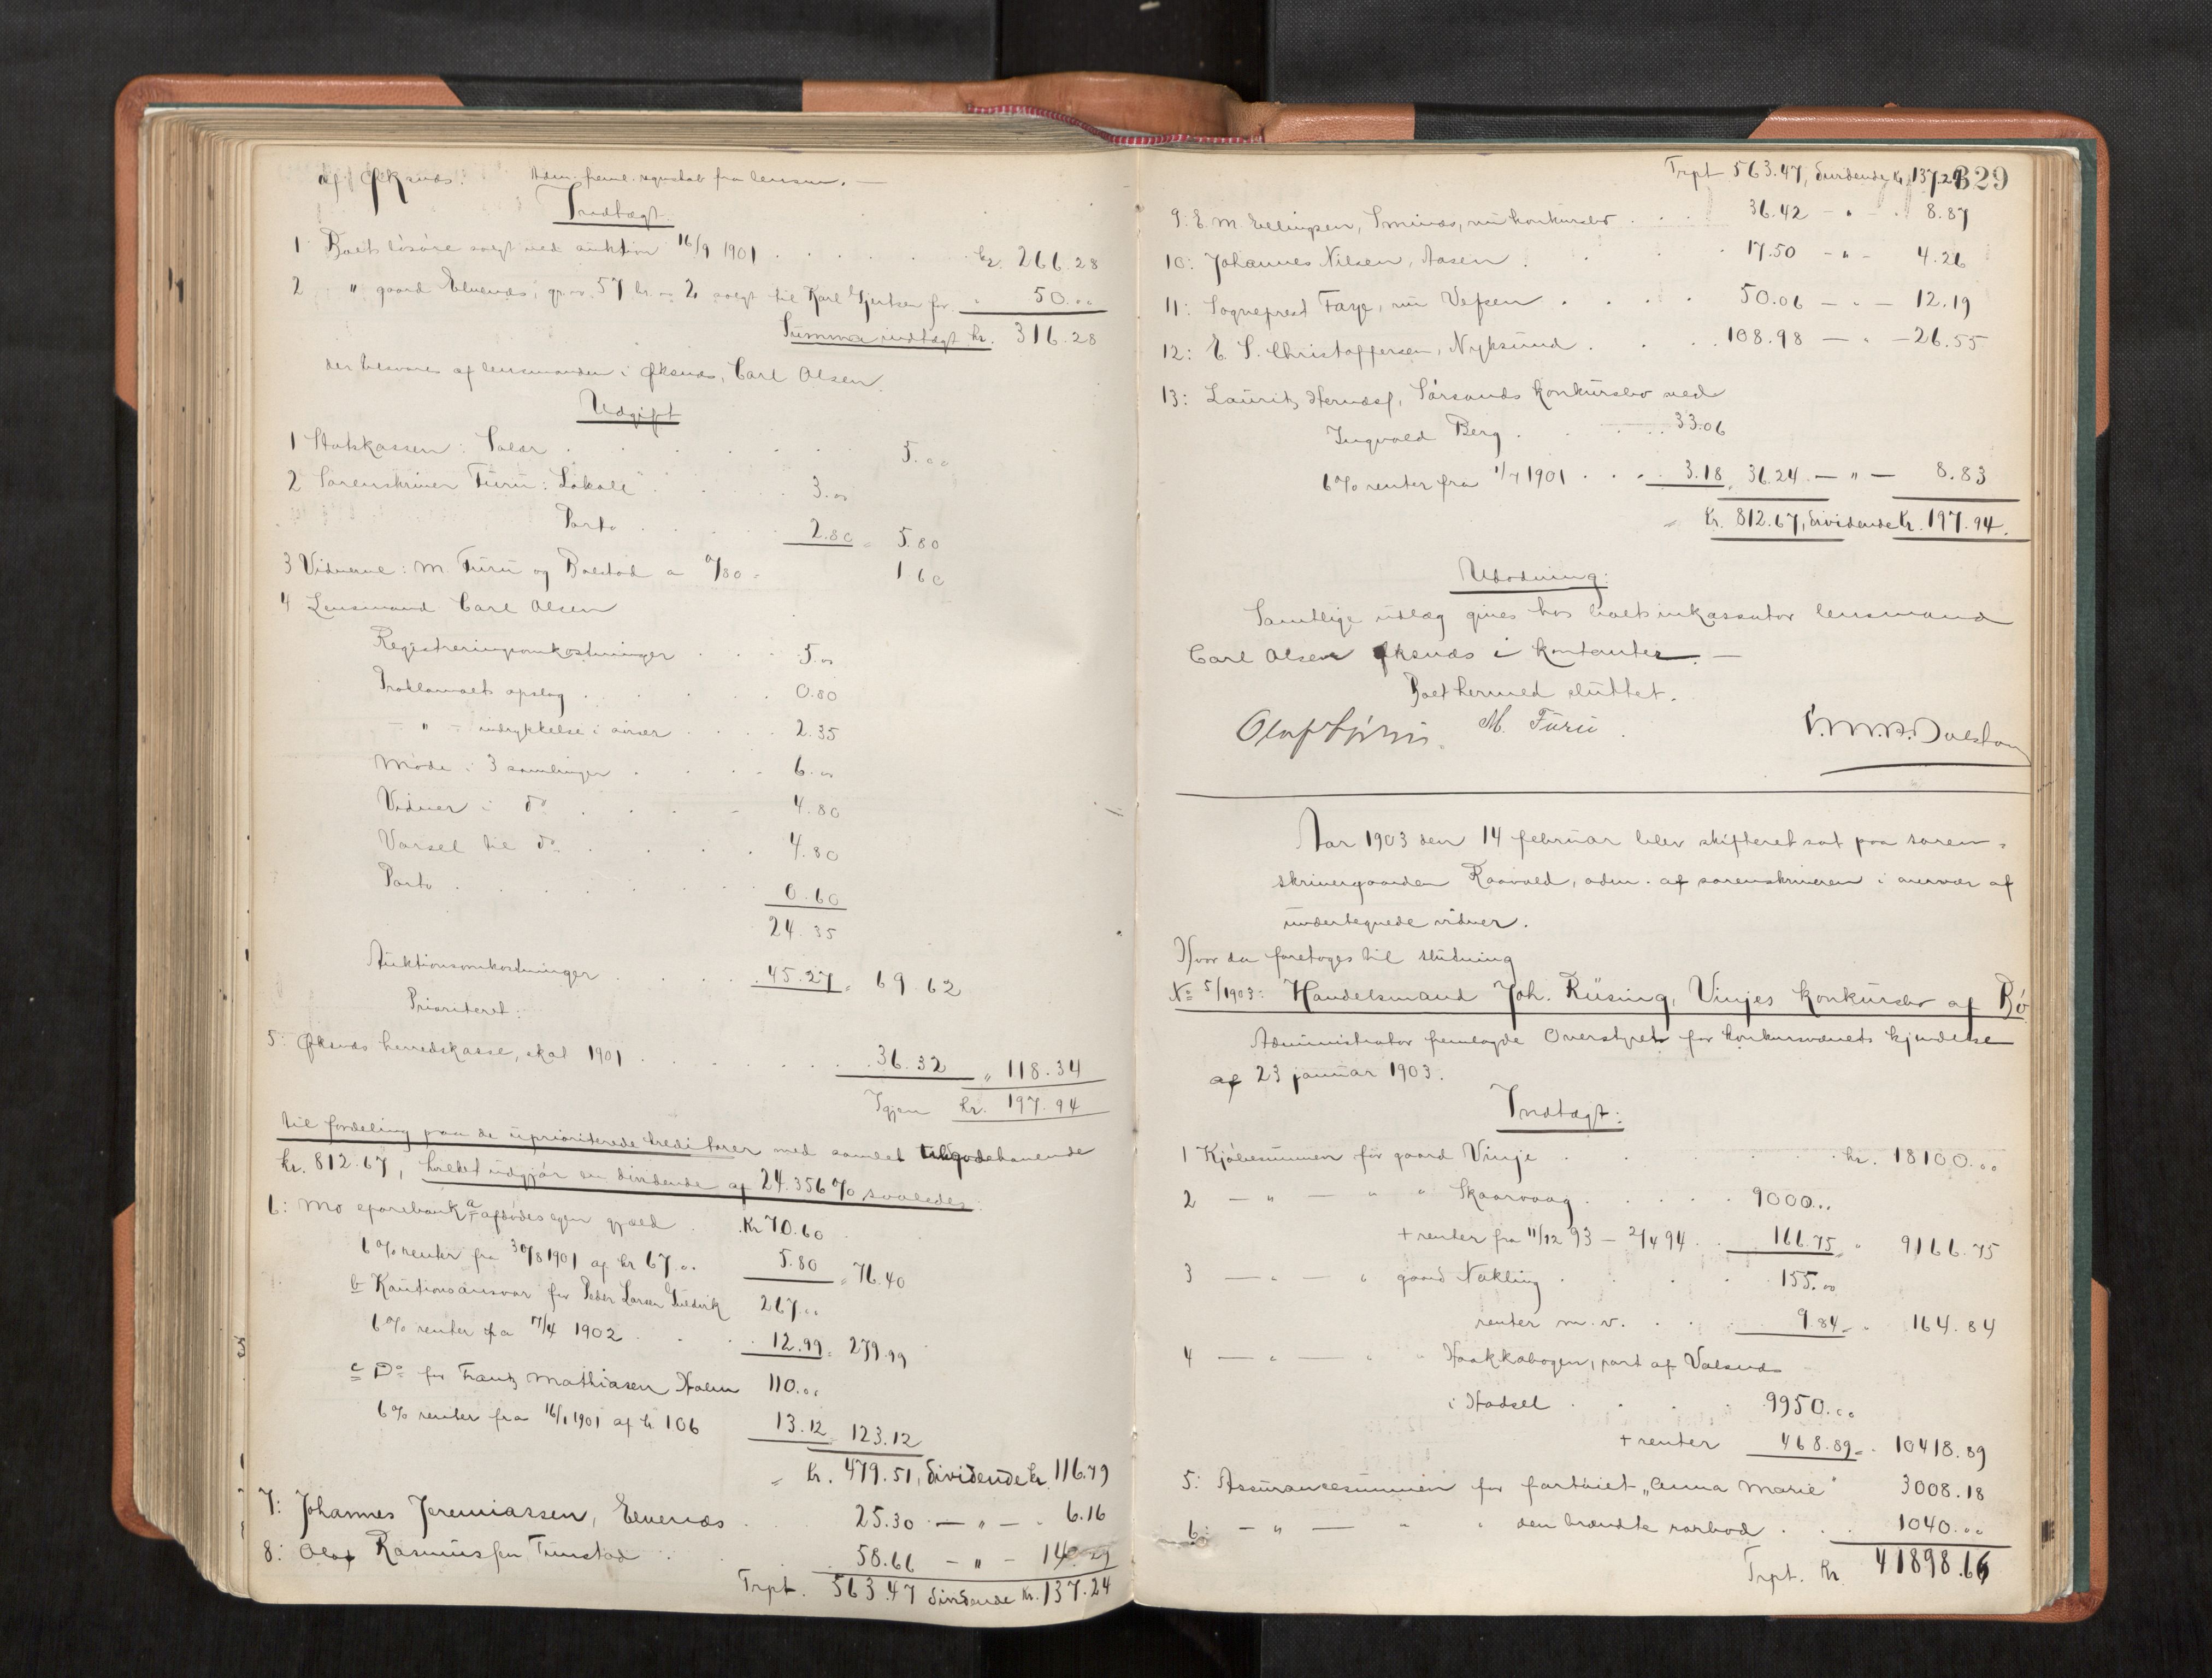 af Øksnæs. Adm. freml. regnskab fra lensm. —
Indtægt.
1 Boets løsøre solgt ved auktion 16/9 1901 . . . . . kr. 266.28
2 " gaard Elvenæs, gr. no. 57 br. no 2 solgt til Karl Gjertsen for " 50.00
Summa indtægt kr. 316.28
der besvares af lensmanden i Øksnæs, Carl Olsen.
Udgift
1 Statskassen: Salær . . . . . . . 5.00
2 Sorenskriver Furu: Lokale . . . 3.00
Porto . . . . . 2.80 = 5.80
3 Vidnerne: M. Furu og Bolstad a 0/80 = 1 60
4 Lensmand Carl Olsen
Registreringsomkostninger . . . 5.00
Proklamaets opslag . . . . . 0.80
— " — indrykkelse i aviser . . . . 2.35
Møde i 3 samlinger . . . . 6.00
Vidner i do . . . . 4.80
Varsel til do . . . . 4.80
Porto . . . . . . . 0.60
24.35
Auktionsomkostninger . . . . 45.27 = 69.62
Prioriteret:
5: Øksnæs herredskasse, skat 1901 . . . . . . 36.32 " 118.34
Igjen kr. 197.94
til fordeling paa de uprioriterede kreditorer med samlet tilgodehavende
kr. 812.67, hvilket udgjør en dividende af 24.356 % saaledes:
6: Mo sparebank a afdødes egen gjæld . Kr 70.60
6 % renter fra 30/8 1901 af kr 67.00 5.80 = 76.40
b Kautionsansvar for Peder Larsen 267.00
6 % renter fra 17/4 1902 . . . . 12.99 = 279.99
c Do for Frantz Mathiasen Holm 110.00
6 % renter fra 16/1 1901 af kr 106 13.12 123.12
= kr. 479.51, dividende kr 116.79
7: Johannes Jeremiassen, Elvenæs . 25.30 — " — . 6.16
8: Olaf Rasmussen Tunstad . . 58.66 — " — 14.29
Trpt. 563.47 dividende Kr. 137.24
Trpt 563.47, dividende kr 137.24 329
9: E. M. Ellingsen, Sminæs, nu konkursbo . . . 36.42 — " — 8.87
10: Johannes Nilsen, Aasen . . . . 17.50 — " — 4.26
11: Sogneprest Faye, nu Vefsen . . . . 50.06 — " — 12.19
12: E. S. Christoffersen, Nyksund . . . . 108.98 — " — 26.55
13: Lauritz Hernæs, Sørsands konkursbo ved
Ingvald Berg . . . . 33.06
6 % renter fra 1/7 1901 . . . 3.18 36.24 — " — 8.83
= kr. 812.67, dividende kr. 197.94.
Udlodning:
Samtlige udlæg gives hos boets inkassator lensmand
Carl Olsen Øksnæs i kontanter. —
Boet hermed sluttet.
M. Furu
Aar 1903 den 14 februar blev skifteret sat paa soren-
skrivergaarden Raavold, adm. af sorenskriveren i overvær af
undertegnede vidner.
Hvor da foretoges til slutning
No 5/1903: Handelsmand Joh. Rüsing, Vinjes konkursbo af Bø
Administrator fremlagde Overstyret for konkursvæsnets kjendelse
af 23 januar 1903.
Indtægt:
1 Kjøbesummen for gaard Vinje . . . . kr. 18100.00
2 — " — " " Skaarvaag . . . . 9000.00
+ renter fra 11/12 93 — 2/4 94 . . 166.75 = 9166.75
3 — " — " gaard Nykling . . . . 155.00
renter m. v. . . . 9.84 = 164.84
4 — " — " " Haakkabogen, part af Valsnæs
i Hadsel . . . . 9950.00
+ renter 468.89 = 10418.89
5: Assurancesummen for fartøiet „Anna Marie" 3008.18
6: — " — " " den brændte rorbod . . . 1040.00
Trpt. Kr. 41898.66